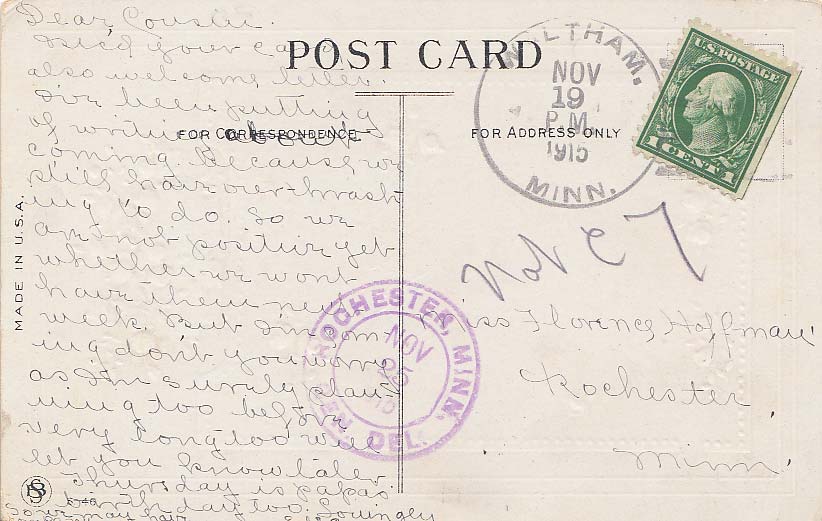 Dear Cousin.
Rec'd your card
also welcome letter.
I've been putting
of writing about
coming. Because we
still have our thrash
ing to do. So we
are not positive yet
whether we wont
have them next
week. But I'm com
ing don't you worry
as I'm surely plan
ning too before
very long too will
let you know later.
Thursday is papas
birthday too. Lovingly
So we may have
POST CARD
FOR CORRESPONDENCE
FOR ADDRESS ONLY
MADE IN U.S.A.
WALTHAM,
NOV
19
P.M.
1915
MINN.
U.S. POSTAGE
1 CENT 1
ROCHESTER MINN.
NOV
25
DEL.
Miss Florence Hoffman
Rochester
Minn.